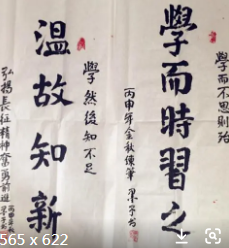 學而不思則殆
學而時習之
丙申年金秋陳筆 梁子书
學然後知不足
溫故知新
弘揚長征精神奮勇前進
565 x 622